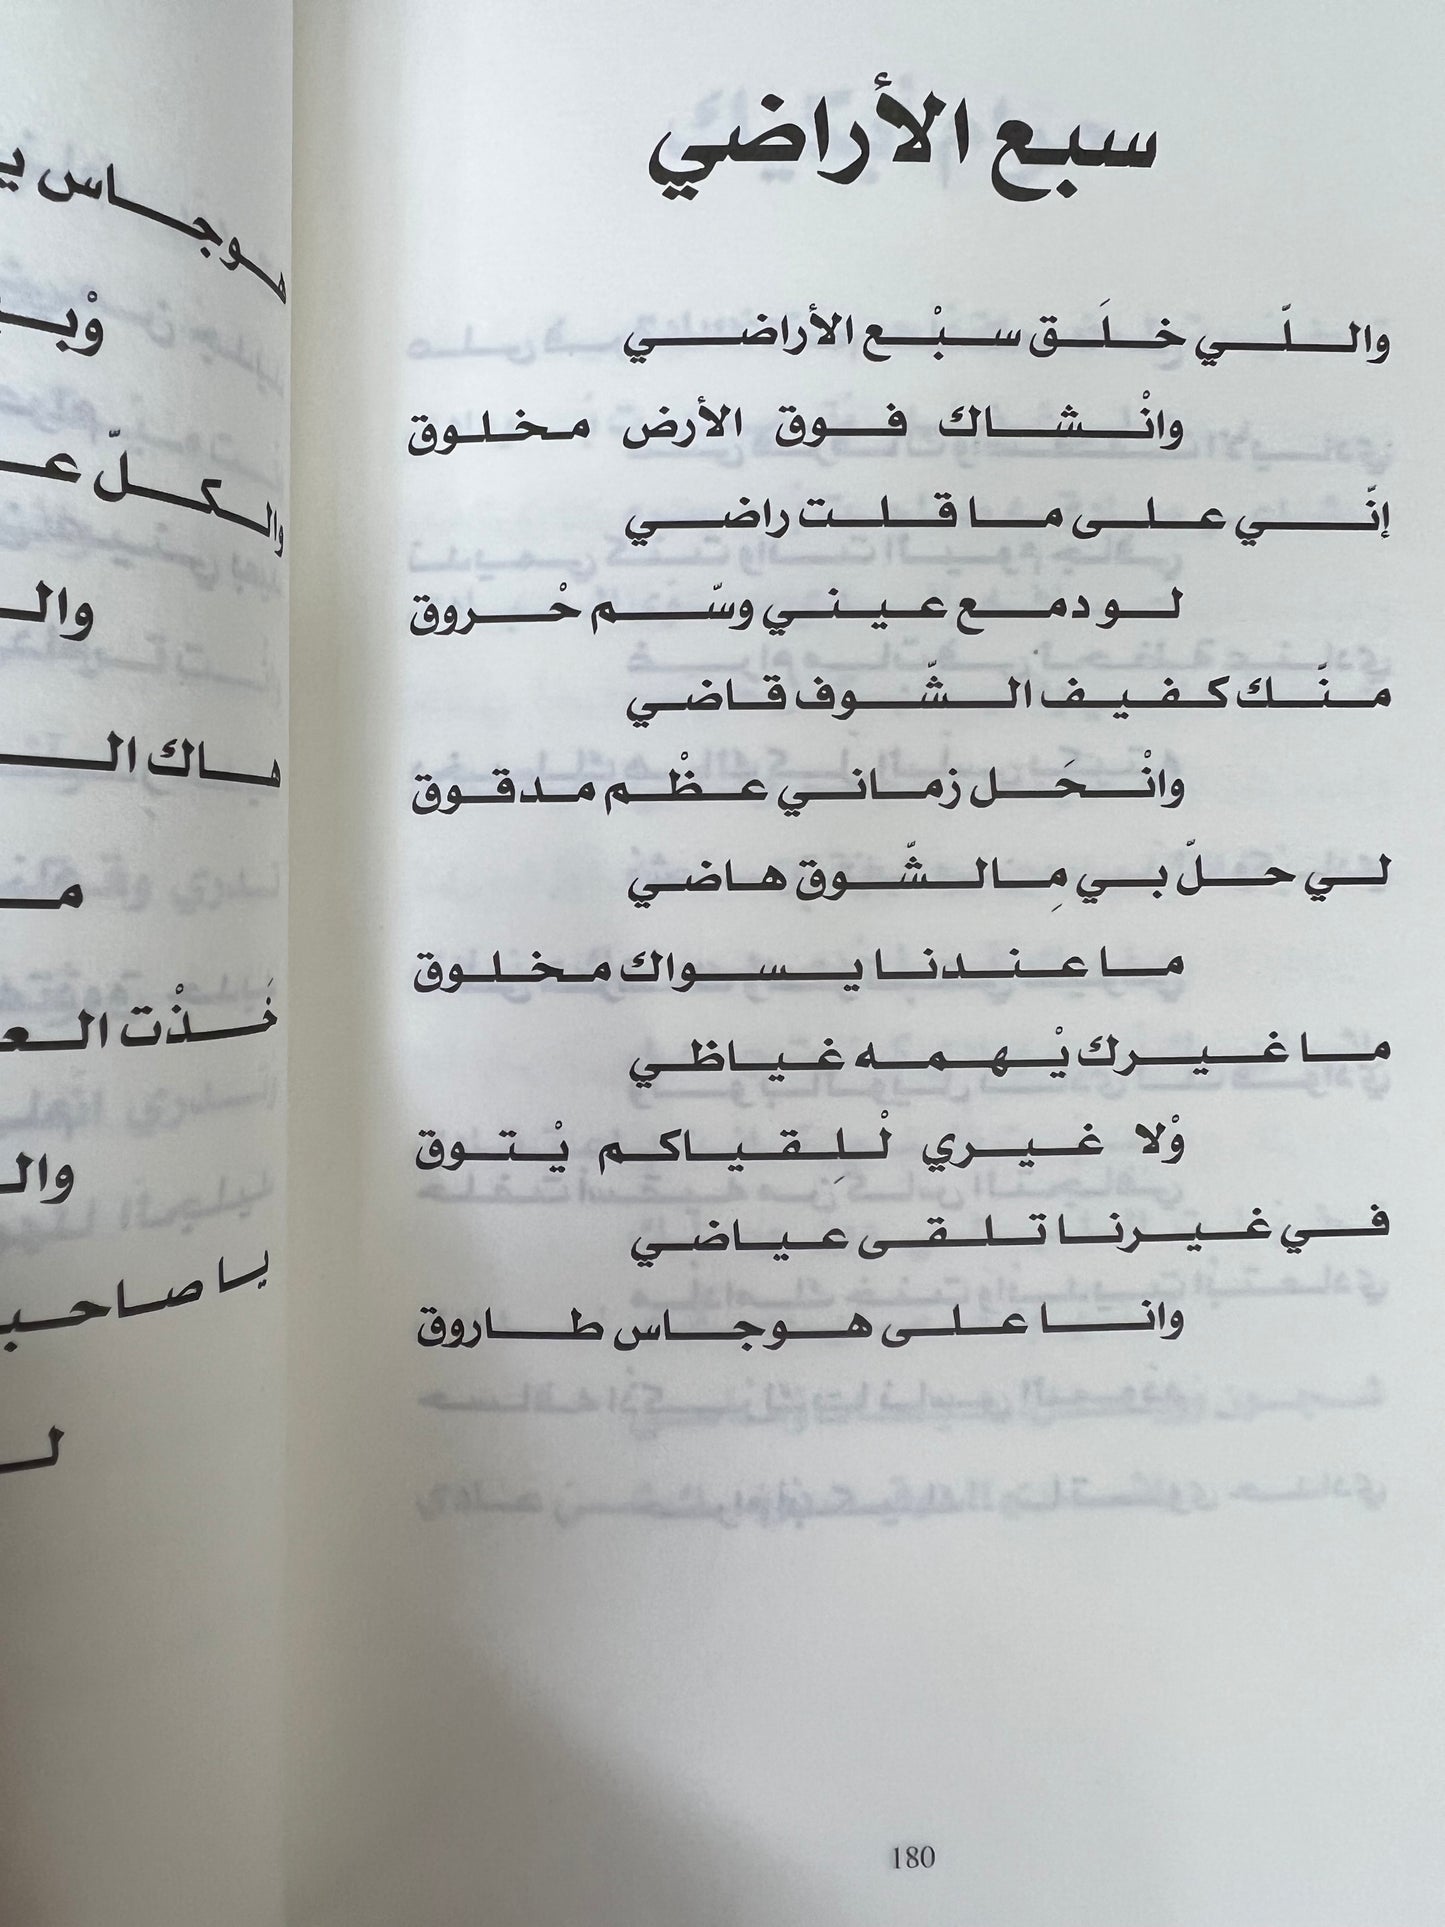 سبع الأراضي
واللّي خلَق سبْع الأراضي
وانْشاك فوق الأرض مخلوق
إنّي على ما قلت راضي
لو دمع عيني وسّم حْروق
منّك كفيف الشّوف قاضي
وانْحَل زماني عظْم مدقوق
لي حلّ بي مِالشّوق هاضي
ما عندنا يسواك مخلوق
ما غيرك يْهمه غياظي
وْلا غيري لْلِقياكم يْتوق
في غيرنا تلقى عياضي
وانا على هوجاس طاروق
180
هوجاس
والكلّ
وال
هاك
خَذْت
وال
يا